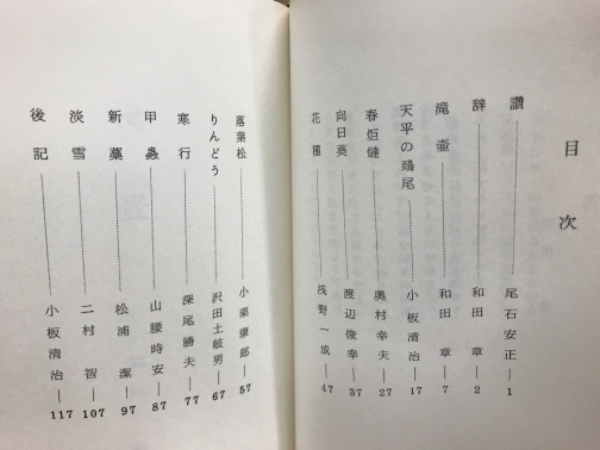 目次
讃 尾石安正 1
辞 和田章 2
滝壷 和田章 7
天平の鴟尾 小板清治 17
春炬燵 奥村幸夫 27
向日葵 渡辺俊幸 37
花種 浅野一成 47
落葉松 小栗康郎 57
りんどう 沢田土岐男 67
寒行 深尾勝夫 77
甲蟲 山腰時安 87
新藁 松浦潔 97
淡雪 二村智 107
後記 小板清治 117